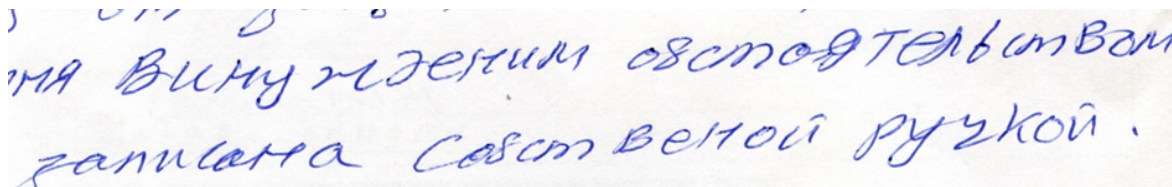 ня винужденим обстоятельствам
записана собственой ручкой.